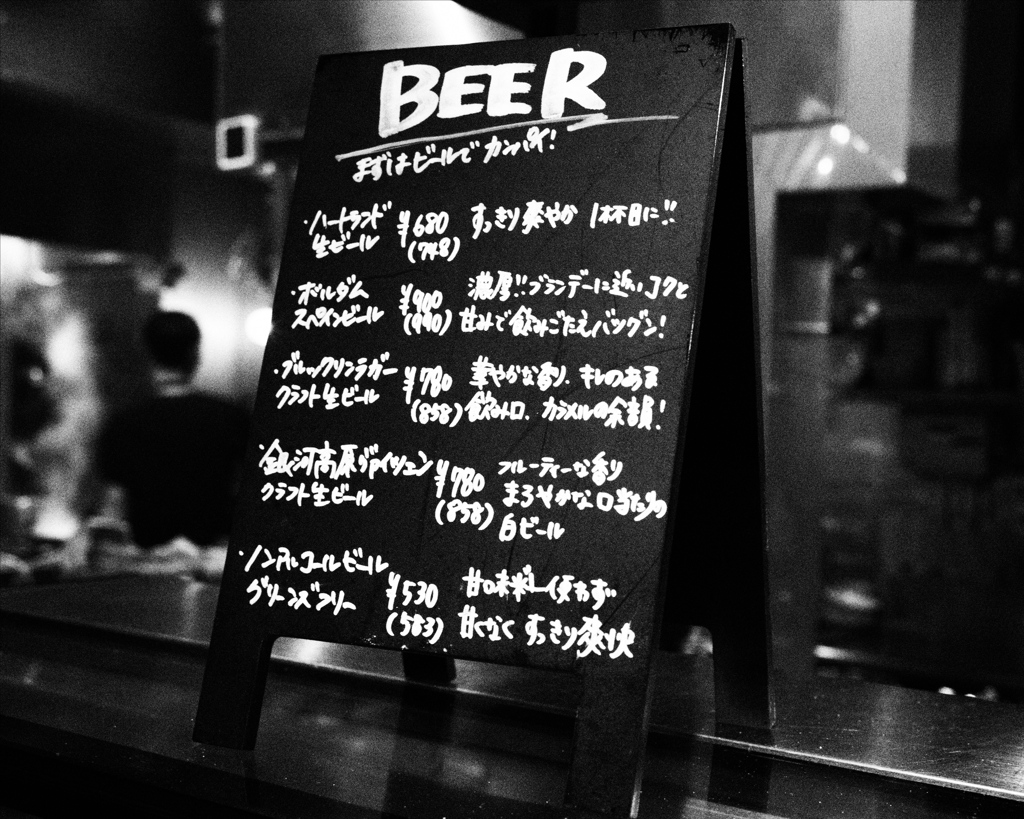 BEER
まずはビールでカンパイ!
・ハートランド ¥680 すっきり爽やか 1杯目に!!
生ビール (748)
・ボルダム ¥900 濃厚!!ブランデーに近いコクと
スペインビール (990) 甘みで飲みごたえバツグン!
・ブルックリンラガー ¥780 華やかな香り、キレのある
クラフト生ビール (858) 飲み口、カラメルの余韻!
・銀河高原ヴァイツェン ¥780 フルーティーな香り
クラフト生ビール (858) まろやかな口当たりの
白ビール
・ノンアルコールビール ¥530 甘味料使わず
グリーンズフリー (583) 甘くなくすっきり爽快